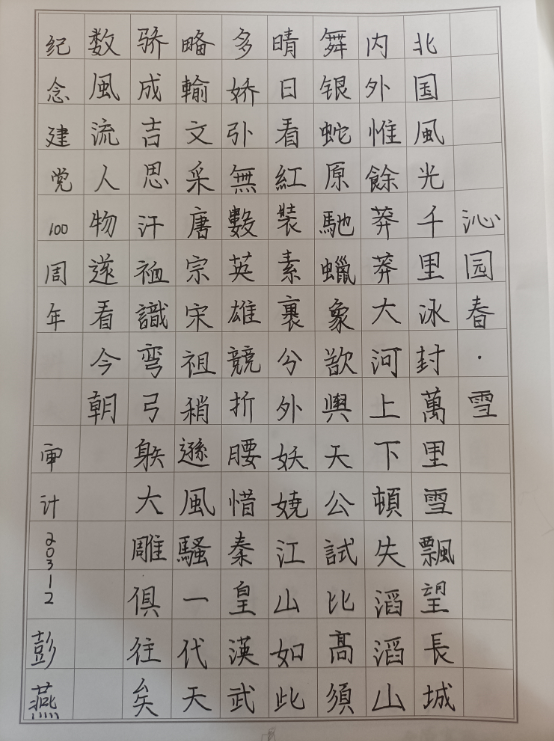 沁园春·雪
北国風光千里冰封萬里雪飄望長城
内外惟餘莽莽大河上下頓失滔滔山
舞银蛇原馳蠟象欲與天公試比高須
晴日看紅裝素裹兮外妖嬈江山如此
多娇引無數英雄競折腰惜秦皇漢武
略輸文采唐宗宋祖稍遜風騷一代天
骄成吉思汗 識弯弓 大雕俱往矣
数風流人物 看今朝
纪念建党100周年
审计20312
彭燕